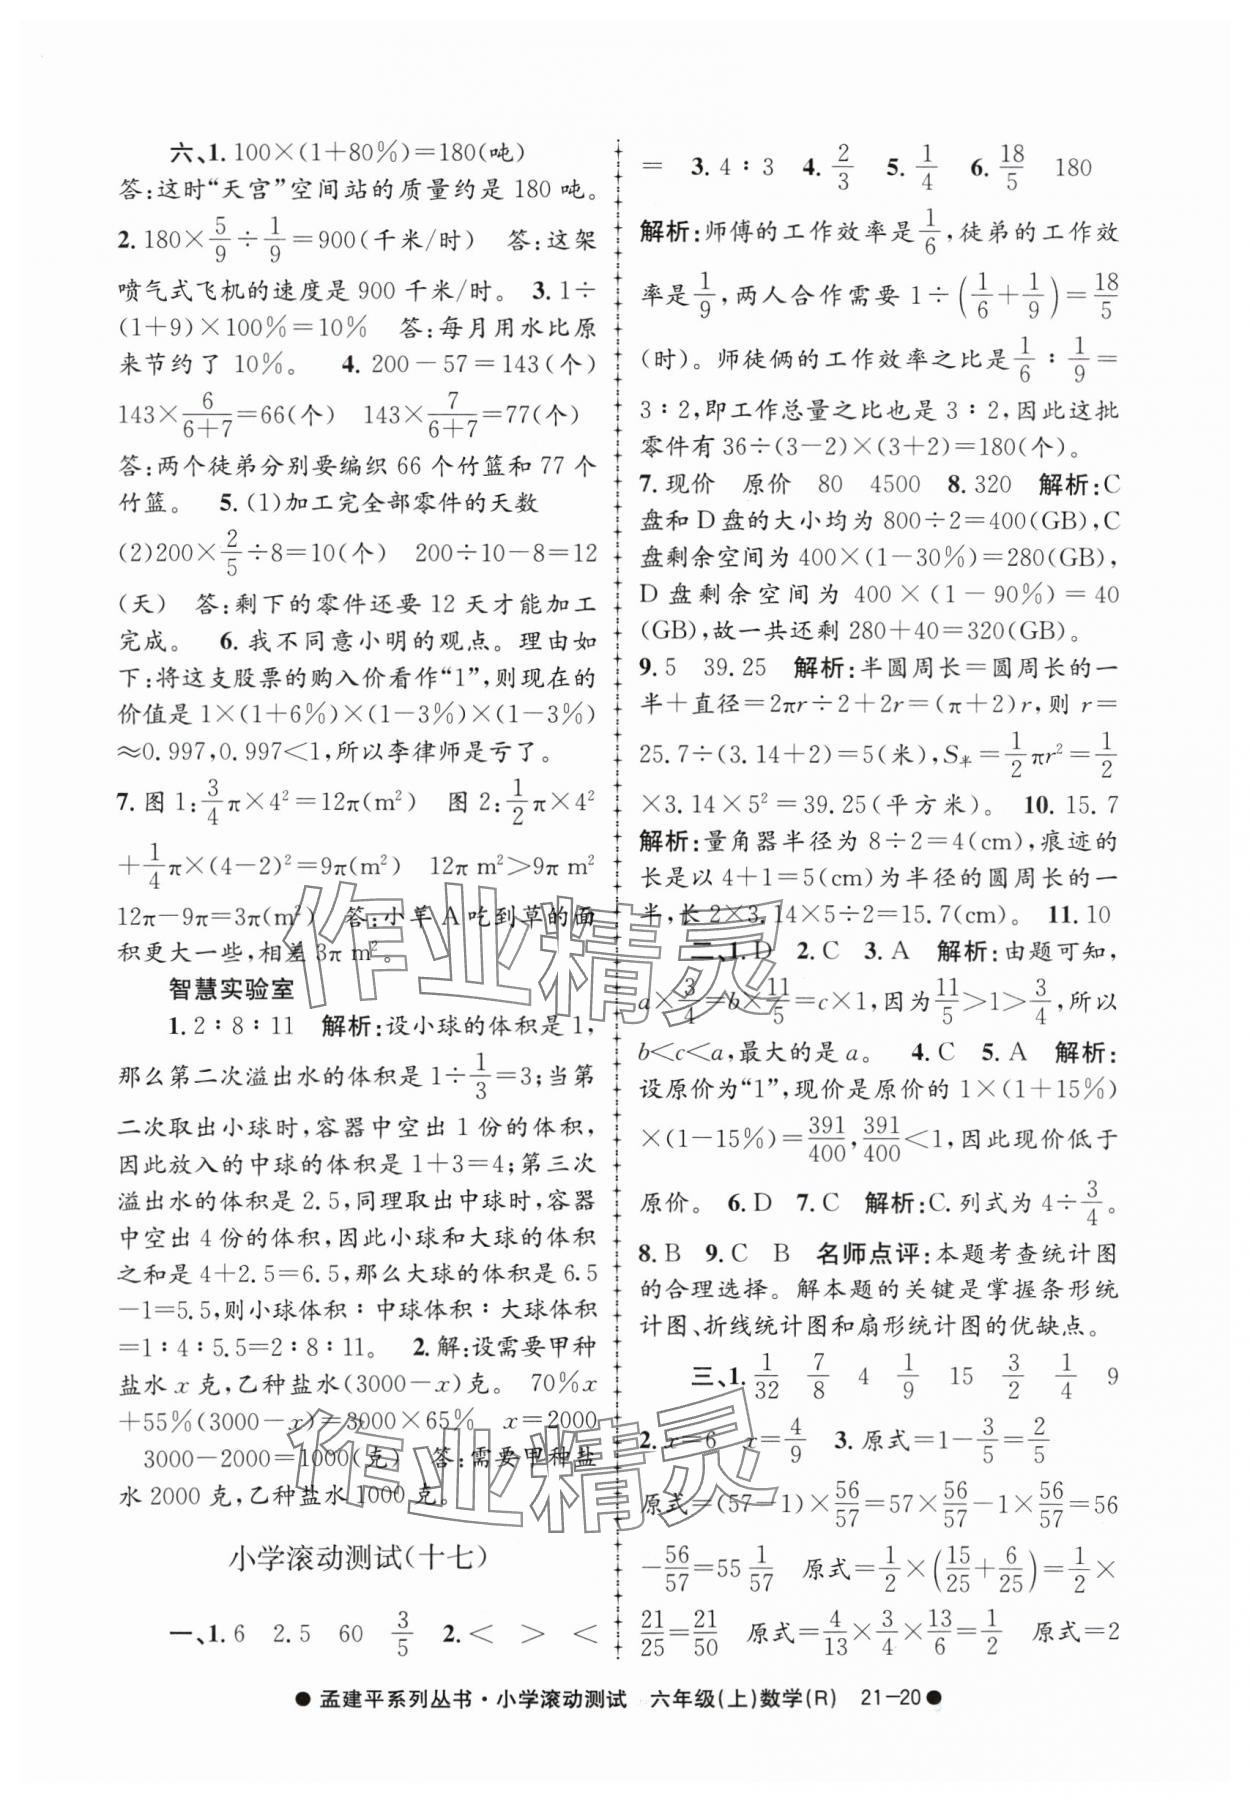 六、1. 100×(1+80%)=180(吨)
答:这时“天宫”空间站的质量约是 180 吨。
2. 180×5/9÷1/9=900(千米/时) 答:这架
喷气式飞机的速度是 900 千米/时。 3. 1÷
(1+9)×100%=10% 答:每月用水比原
来节约了 10%。 4. 200-57=143(个)
143×6/(6+7)=66(个) 143×7/(6+7)=77(个)
答:两个徒弟分别要编织 66 个竹篮和 77 个
竹篮。 5. (1)加工完全部零件的天数
(2)200×2/5÷8=10(个) 200÷10-8=12
(天) 答:剩下的零件还要 12 天才能加工
完成。 6. 我不同意小明的观点。理由如
下:将这支股票的购入价看作“1”,则现在的
价值是 1×(1+6%)×(1-3%)×(1-3%)
≈0.997,0.997<1,所以李律师是亏了。
7. 图 1:3/4π×4²=12π(m²) 图 2:1/2π×4²
+1/4π×(4-2)²=9π(m²) 12π m²>9π m²
12π-9π=3π(m²) 答:小羊 A 吃到草的面
积更大一些,相差 3π m²。
智慧实验室
1. 2∶8∶11 解析:设小球的体积是 1,
那么第二次溢出水的体积是 1÷1/3=3;当第
二次取出小球时,容器中空出 1 份的体积,
因此放入的中球的体积是 1+3=4;第三次
溢出水的体积是 2.5,同理取出中球时,容器
中空出 4 份的体积,因此小球和大球的体积
之和是 4+2.5=6.5,那么大球的体积是 6.5
-1=5.5,则小球体积∶中球体积∶大球体积
=1∶4∶5.5=2∶8∶11。 2. 解:设需要甲种
盐水 x 克,乙种盐水(3000-x)克。 70%x
+55%(3000-x)=3000×65% x=2000
3000-2000=1000(克) 答:需要甲种盐
水 2000 克,乙种盐水 1000 克。
小学滚动测试(十七)
一、1. 6 2.5 60 3/5 2. < > <
= 3. 4∶3 4. 2/3 5. 1/4 6. 18/5 180
解析:师傅的工作效率是1/6,徒弟的工作效
率是1/9,两人合作需要 1÷(1/6+1/9)=18/5
(时)。师徒俩的工作效率之比是1/6∶1/9=
3∶2,即工作总量之比也是 3∶2,因此这批
零件有 36÷(3-2)×(3+2)=180(个)。
7. 现价 原价 80 4500 8. 320 解析:C
盘和 D 盘的大小均为 800÷2=400(GB),C
盘剩余空间为 400×(1-30%)=280(GB),
D 盘剩余空间为 400×(1-90%)=40
(GB),故一共还剩 280+40=320(GB)。
9. 5 39.25 解析:半圆周长=圆周长的一
半+直径=2πr÷2+2r=(π+2)r,则 r=
25.7÷(3.14+2)=5(米),S半=1/2πr²=1/2
×3.14×5²=39.25(平方米)。 10. 15.7
解析:量角器半径为 8÷2=4(cm),痕迹的
长是以 4+1=5(cm)为半径的圆周长的一
半,长 2×3.14×5÷2=15.7(cm)。 11. 10
二、1. D 2. C 3. A 解析:由题可知,
a×3/4=b×11/5=c×1,因为11/5>1>3/4,所以
b<c<a,最大的是 a。 4. C 5. A 解析:
设原价为“1”,现价是原价的 1×(1+15%)
×(1-15%)=391/400,391/400<1,因此现价低于
原价。 6. D 7. C 解析:C. 列式为 4÷3/4。
8. B 9. C B 名师点评:本题考查统计图
的合理选择。解本题的关键是掌握条形统
计图、折线统计图和扇形统计图的优缺点。
三、1. 1/32 7/8 4 1/9 15 3/2 1/4 9
2. x=6 x=4/9 3. 原式=1-3/5=2/5
原式=(57-1)×56/57=57×56/57-1×56/57=56
-56/57=55 1/57 原式=1/2×(15/25+6/25)=1/2×
21/25=21/50 原式=4/13×3/4×13/6=1/2 原式=2
●孟建平系列丛书·小学滚动测试 六年级(上)数学(R) 21-20●
作业精灵
作业精灵